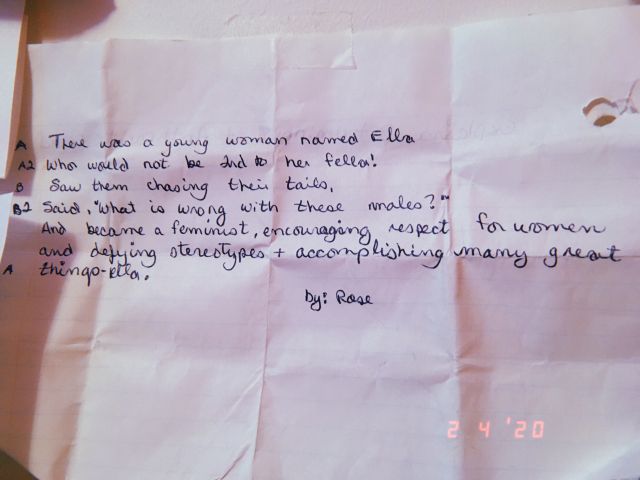 A There was a young woman named Ella
A2 Who would not be 2nd to her fella!
B Saw them chasing their tails,
B2 Said, "What is wrong with these males?"
And became a feminist, encouraging respect for women
and defying stereotypes + accomplishing many great
A things-Ella.
By: Rose
2 4 '20